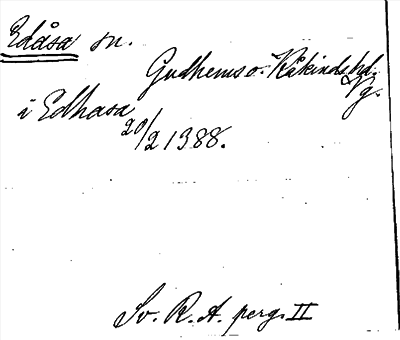 Edåsa sn.
Gudhems o. Kåkinds hd.
Vg.
i Edhasa
20/2 1388.
Sv. R. A. perg. II